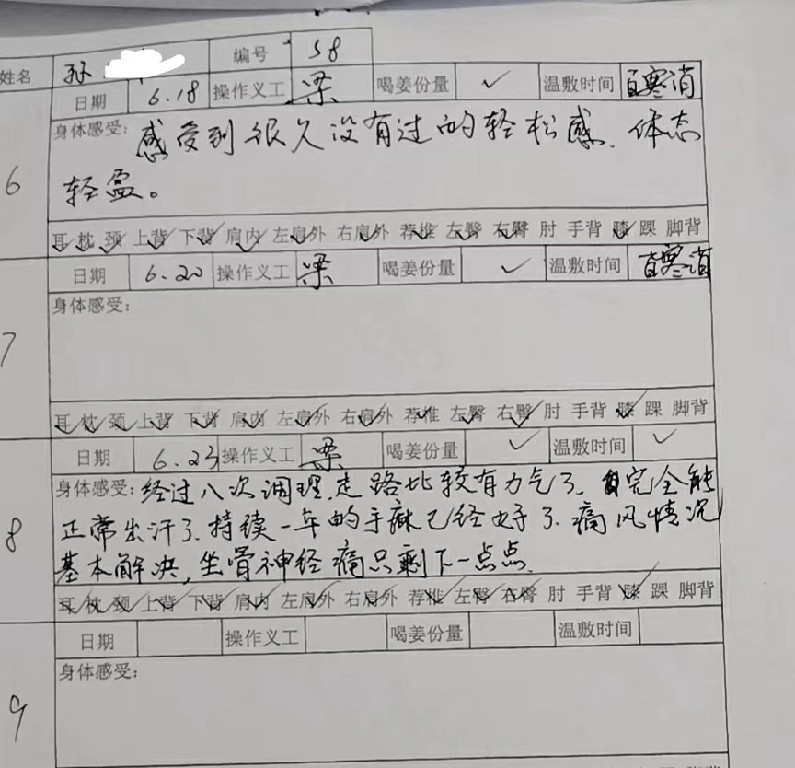 姓名 孙 编号 58
6 日期 6.18 操作义工 梁 喝姜份量 ✓ 温敷时间 百寒消
身体感受: 感受到很久没有过的轻松感. 体态
轻盈。
耳 枕 颈 上背 下背 肩内 左肩外 右肩外 荐椎 左臀 右臀 肘 手背 膝 踝 脚背
7 日期 6.20 操作义工 梁 喝姜份量 ✓ 温敷时间 百寒消
身体感受:
耳 枕 颈 上背 下背 肩内 左肩外 右肩外 荐椎 左臀 右臀 肘 手背 膝 踝 脚背
8 日期 6.23 操作义工 梁 喝姜份量 ✓ 温敷时间 ✓
身体感受: 经过八次调理, 走路比较有力气了. 完全能
正常出汗了. 持续一年的手麻已经好了. 痛风情况
基本解决, 坐骨神经痛只剩下一点点.
耳 枕 颈 上背 下背 肩内 左肩外 右肩外 荐椎 左臀 右臀 肘 手背 膝 踝 脚背
9 日期 操作义工 喝姜份量 温敷时间
身体感受: